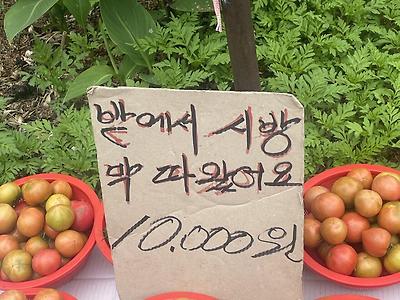 밭에서 시방
막 따왔어요
10.000원